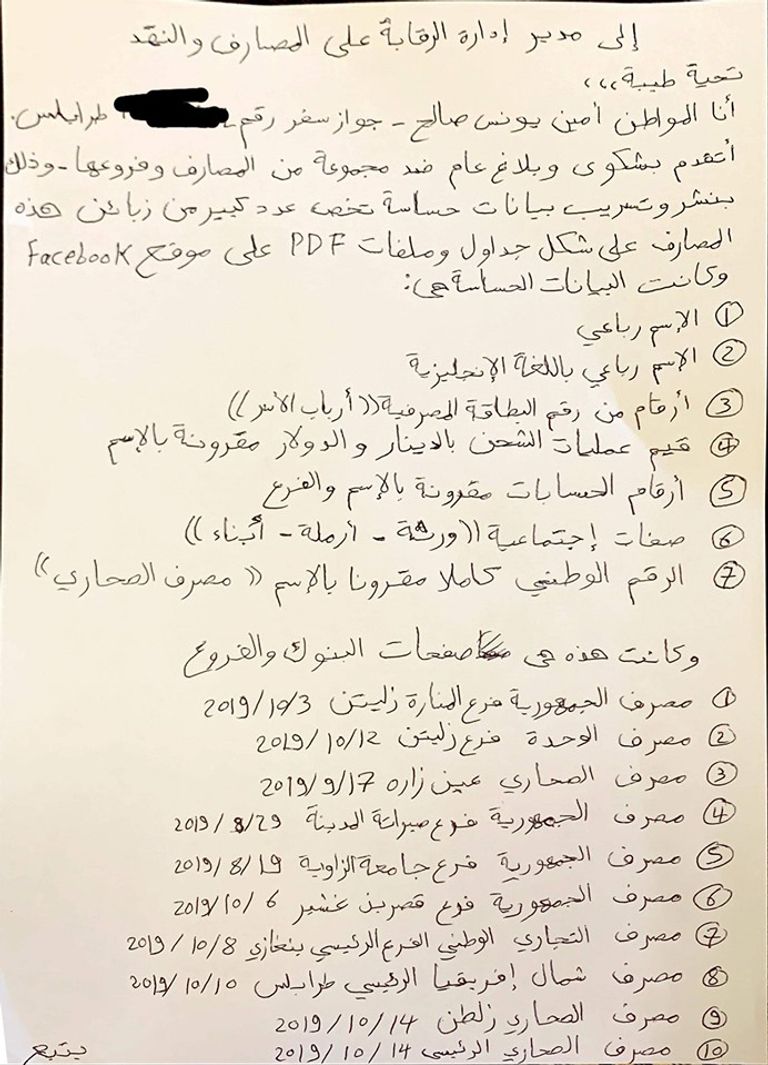 إلى مدير إدارة الرقابة على المصارف والنقد
تحية طيبة،،،
أنا المواطن أمين يونس صالح - جواز سفر رقم طرابلس.
أتقدم بشكوى وبلاغ عام ضد مجموعة من المصارف وفروعها - وذلك
بنشر وتسريب بيانات حساسة تخص عدد كبير من زبائن هذه
المصارف على شكل جداول وملفات PDF على موقع Facebook
وكانت البيانات الحساسة هي:
① الإسم رباعي
② الإسم رباعي باللغة الإنجليزية
③ أرقام من رقم البطاقة المصرفية ((أرباب الأسر))
④ قيم عمليات الشحن بالدينار والدولار مقرونة بالإسم
⑤ أرقام الحسابات مقرونة بالإسم والفرع
⑥ صفات إجتماعية ((ورثة - أرملة - أبناء))
⑦ الرقم الوطني كاملا مقرونا بالإسم ((مصرف الصحاري))
وكانت هذه هي صفحات البنوك والفروع
① مصرف الجمهورية فرع المنارة زليتن 2019/10/3
② مصرف الوحدة فرع زليتن 2019/10/12
③ مصرف الصحاري عين زاره 2019/9/17
④ مصرف الجمهورية فرع صبراتة المدينة 2019/8/29
⑤ مصرف الجمهورية فرع جامعة الزاوية 2019/8/19
⑥ مصرف الجمهورية فرع قصر بن غشير 2019/10/6
⑦ مصرف التجاري الوطني الفرع الرئيسي بنغازي 2019/10/8
⑧ مصرف شمال إفريقيا الرئيسي طرابلس 2019/10/10
⑨ مصرف الصحاري زلطن 2019/10/14
⑩ مصرف الصحاري الرئيسى 2019/10/14
يتبع